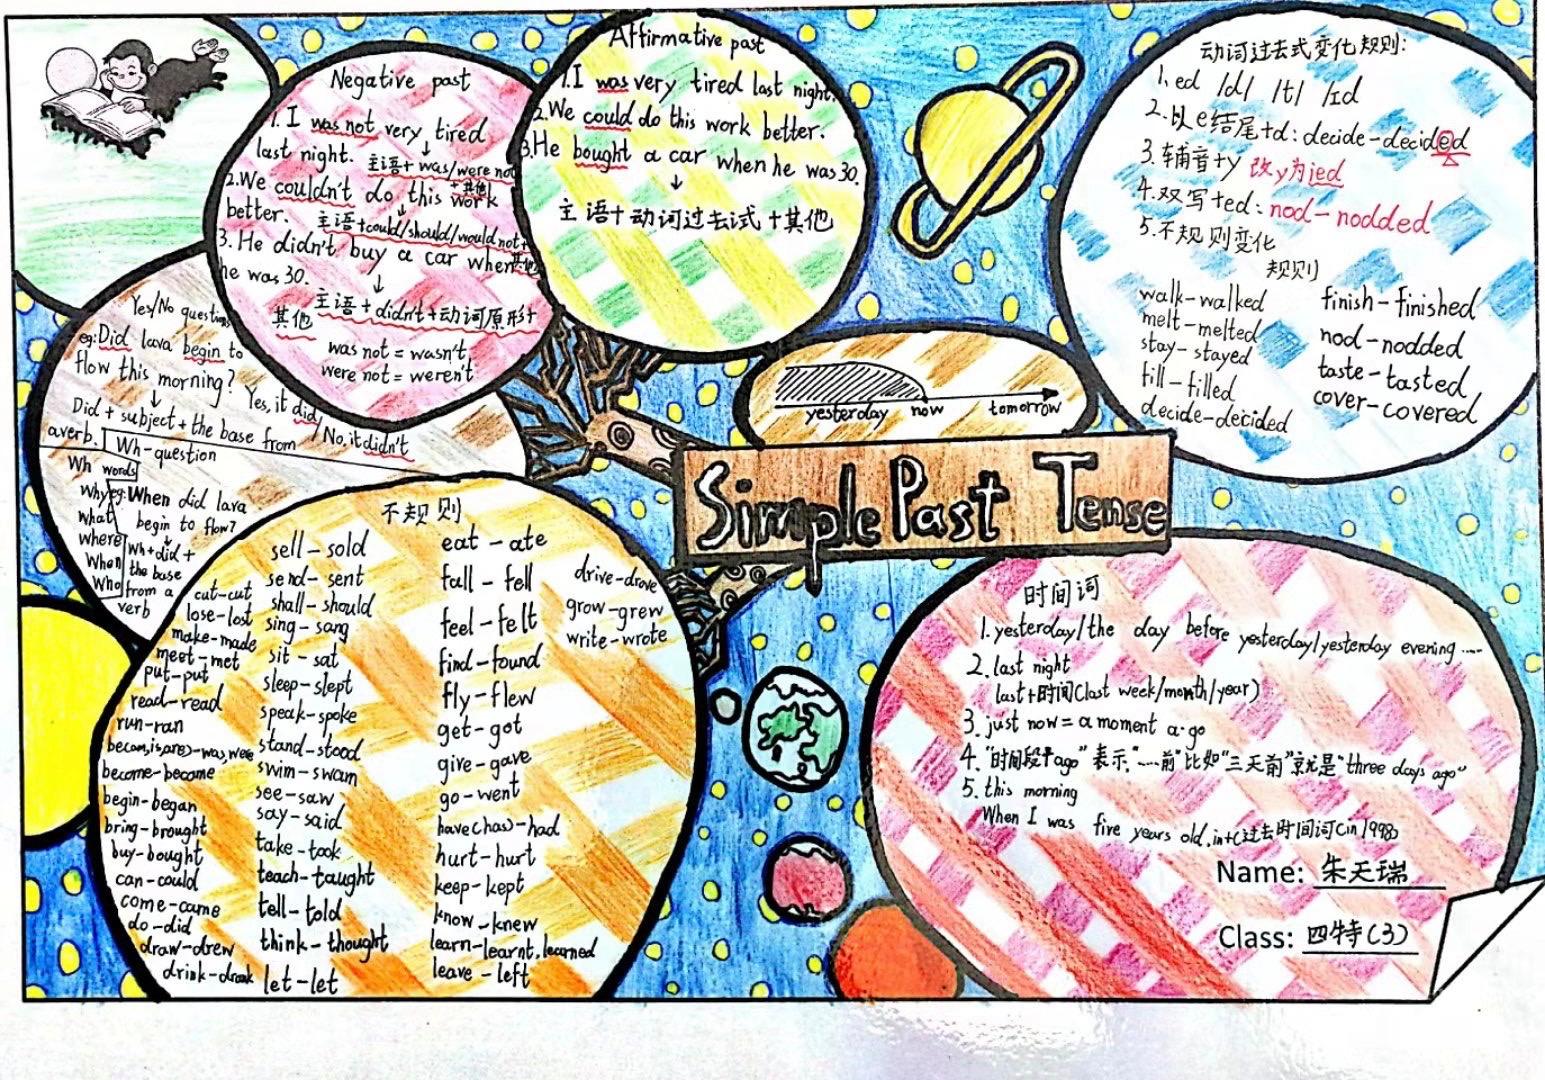 Negative past
1. I was not very tired
last night.
主语+was/were not
+其他
2. We couldn't do this work
better.
主语+could/should/would not+
其他
3. He didn't buy a car when
he was 30.
主语+didn't+动词原形+
其他
was not = wasn't
were not = weren't
Affirmative past
1. I was very tired last night.
2. We could do this work better.
3. He bought a car when he was 30.
主语+动词过去试+其他
动词过去式变化规则:
1. ed /d/ /t/ /ɪd
2. 以e结尾+d: decide-decided
3. 辅音+y 改y为ied
4. 双写+ed: nod-nodded
5. 不规则变化
规则
walk-walked
melt-melted
stay-stayed
fill-filled
decide-decided
finish-finished
nod-nodded
taste-tasted
cover-covered
Yes/No questions
eg: Did lava begin to
flow this morning?
Yes, it did/No, it didn't
Did + subject + the base from
a verb.
Wh-question
Wh words
Why
What
where
When
Who
eg: When did lava
begin to flow?
Wh+did+
the base
from a
verb
yesterday now tomorrow
Simple Past Tense
不规则
cut-cut
lose-lost
make-made
meet-met
put-put
read-read
run-ran
be(am,is,are)-was,were
become-become
begin-began
bring-brought
buy-bought
can-could
come-came
do-did
draw-drew
drink-drank
sell-sold
send-sent
shall-should
sing-sang
sit-sat
sleep-slept
speak-spoke
stand-stood
swim-swam
see-saw
say-said
take-took
teach-taught
tell-told
think-thought
let-let
eat-ate
fall-fell
feel-felt
find-found
fly-flew
get-got
give-gave
go-went
have(has)-had
hurt-hurt
keep-kept
know-knew
learn-learnt,learned
leave-left
drive-drove
grow-grew
write-wrote
时间词
1. yesterday/the day before yesterday/yesterday evening ......
2. last night
last+时间(last week/month/year)
3. just now = a moment ago
4. "时间段+ago" 表示"……前"比如"三天前"就是"three days ago"
5. this morning
When I was five years old, in+(过去时间词(in 1998)
Name: 朱天瑞
Class: 四特(3)